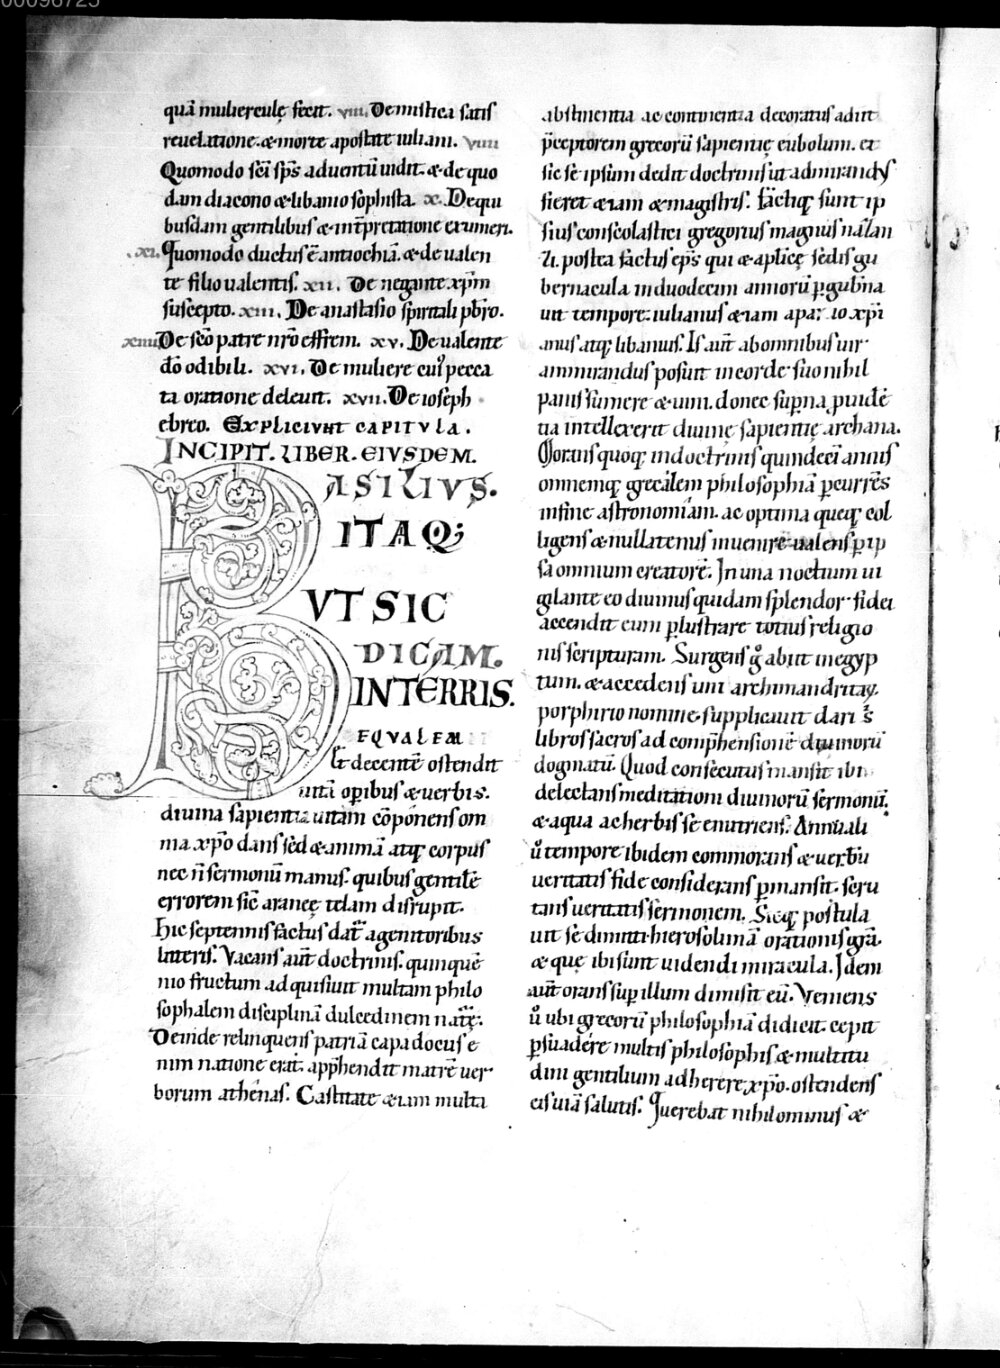 00096725
quā muliercule fecit. viii. De mistica satis
reuelatione. & morte apostate iuliani. viiii
Quomodo scī sp̄s aduentū uidit. & de quo
dam diacono & libanio sophista. x. De qui
busdam gentilibus & int̄pretatione exameri.
.xi. Quomodo ductus ē antiochiā. & de ualen
te filio ualentis. xii. De negante xp̄m
suscepto. xiii. De anastasio spiritali pb̄ro.
xiiii. De scō patre nr̄o effrem. xv. De ualente
dō odibili. xvi. De muliere cui᾽ pecca
ta oratione deleuit. xvii. De ioseph
ebreo. EXPLICIUNT CAPITVLA.
INCIPIT. LIBER. EIVSDEM.
BASILIVS.
ITAQ;
VT SIC
DICAM.
IN TERRIS.
EQVALEM
& decentē ostendit
uitā op̄ibus & uerbis.
diuina sapientia uitam cōponens om
ma xp̄o dans sed & animā atq; corpus
nec ñ sermonū manus. quibus gentilē
errorem sic̄ aranee telam disrupit.
hic septennis factus dat᷑ a genitoribus
litteris. Vacans aut̄ doctrinis. quinquē
nio fructum adquisiuit multam philo
sophalem disciplinā dulcedinem nat᷑ę.
Deinde relinquens patriā capadocus e
nim natione erat. app̄hendit matrē uer
borum athenas. Castitate & iam multa
abstinentia ac continentia decoratus adiit
p̄ceptorem grecorū sapientię eubolum. et
sic se ipsum dedit doctrinis ut admirandus
fieret & iam & magistris. Factiq; sunt ip
sius conscolastici gregorius magnus nāzian
zi. postea factus ep̄s qui & aplicę sedis gu
bernacula in duodecim annorū p̱gub̄na
uit tempore. iulianus & iam apar. io xp̄i
anus atq; libanius. Is aut̄ ab omnibus uir
ammirandus posuit in corde suo nihil
panis sumere & uini. donec sup̄na p̱uidē
tia intellexerit diuinę sapientię archana.
Morans quoq; in doctrinis quindeci annis
omnemq; grecalem philosophiā p̱currēs
in fine astronomiam. ac optima queq; col
ligens & nullatenus inuenire ualens p̱ ip
sa omnium creatorē. In una noctium ui
gilante eo diuinus quidam splendor fidei
accendit eum p̱lustrare totius religio
nis scripturam. Surgens g̊ abiit in egyp
tum. & accedens uni archimandritaȝ
porphirio nomine. supplicauit dari s̄
libros sacros ad comp̄hensionē diuinorū
dogmatū. Quod consecutus mansit ibi
delectans meditationi diuinorū sermonū.
& aqua ac herbis se enutriens. Annuali
ů tempore ibidem commorans & uerbū
ueritatis fide considerans p̱mansit. scru
tans ueritatis sermonem. Sicq; postula
uit se dimitti. hierosolimā orationis grā.
& que ibi sunt uidendi miracula. Idem
aut̄ orans sup̱ illum dimisit eū. Veniens
ů ubi grecorū philosophiā didicit. cepit
p̱suadere multis philosophis & multitu
dini gentilium adherere xp̄o. ostendens
eis uiā salutis. Querebat nihilominus &